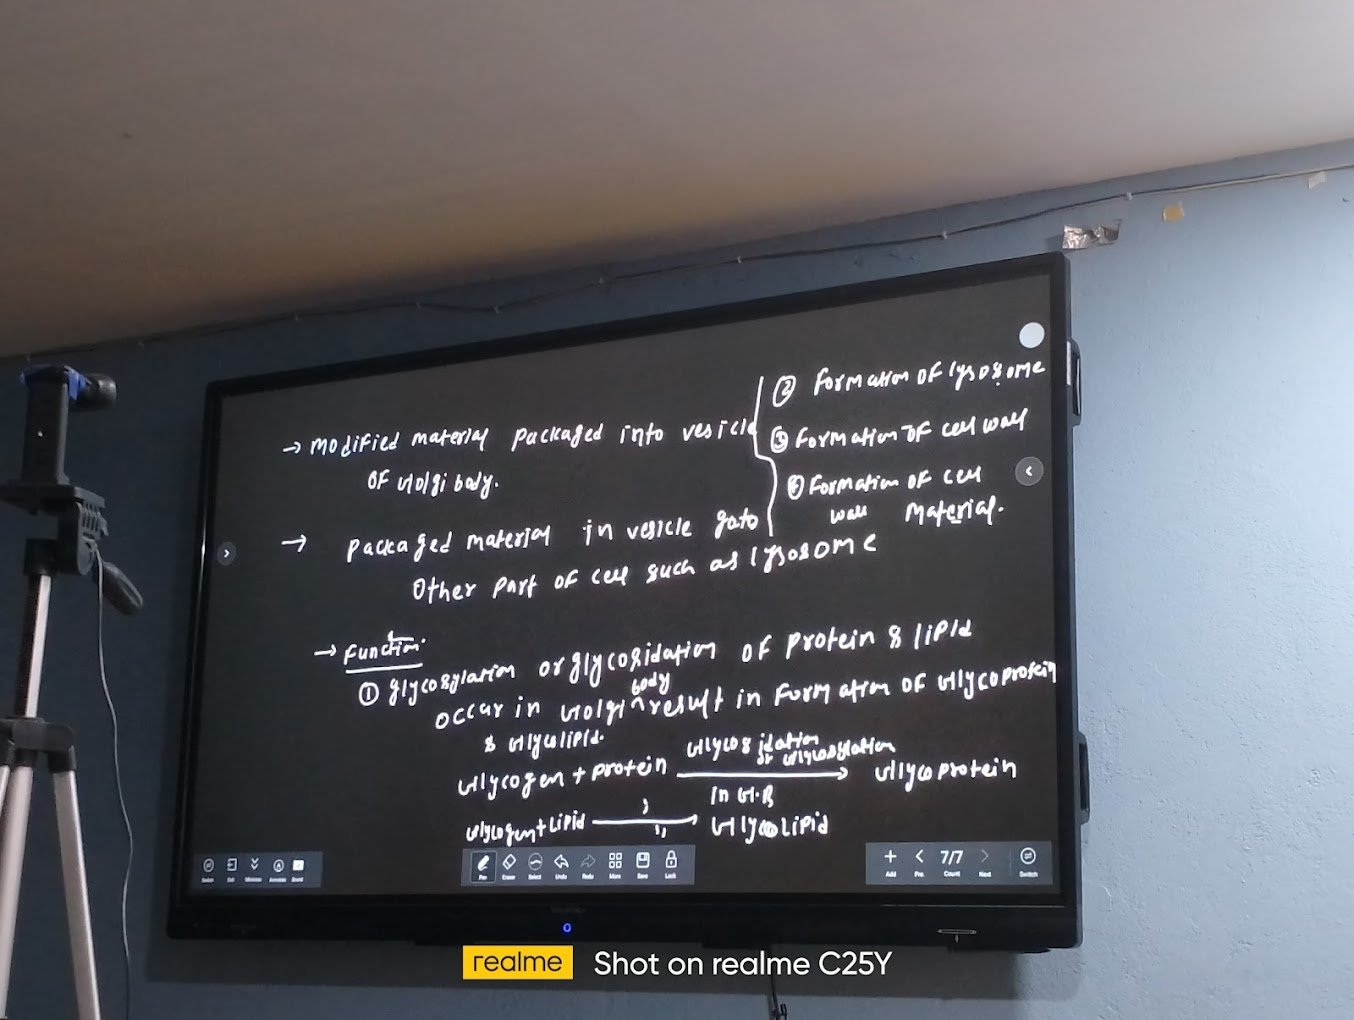 → Modified material packaged into vesicle
of Golgi body.
→ Packaged material in vesicle goto
Other part of cell such as lysosome
② Formation of lysosome
③ Formation of cell wall
④ Formation of cell
wall Material.
→ Function.
① glycosylation or glycosidation of Protein & lipid
body
occur in Golgi ^ result in Formation of Glycoprotein
& Glycolipid.
Glycosidation
or Glycosylation
Glycogen + Protein → Glycoprotein
In G.B
Glycogen + Lipid → Glycolipid
Exit Minimize Annotate Board
Pen Eraser Select Undo Redo More Save Lock
7/7
Add Pre. Count Next Switch
realme Shot on realme C25Y